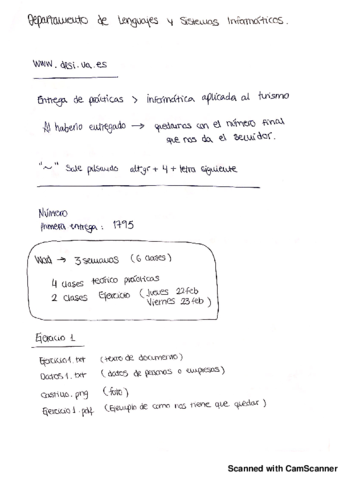 Departamento de Lenguajes y Sistemas Informáticos.
www.dlsi.ua.es
Entrega de prácticas > informática aplicada al turismo
Al haberlo entregado → quedarnos con el número final
que nos da el servidor.
"~" Sale pulsando alt gr + 4 + letra siguiente
Número
Primera entrega: 1795
Word → 3 semanas (6 clases)
4 clases teórico prácticas
2 clases Ejercicio (Jueves 22 feb
Viernes 23 feb)
Ejercicio 1
Ejercicio1.txt (texto de documento)
Datos1.txt (datos de personas o empresas)
.png (foto)
Ejercicio1.pdf (Ejemplo de como nos tiene que quedar)
Scanned with CamScanner